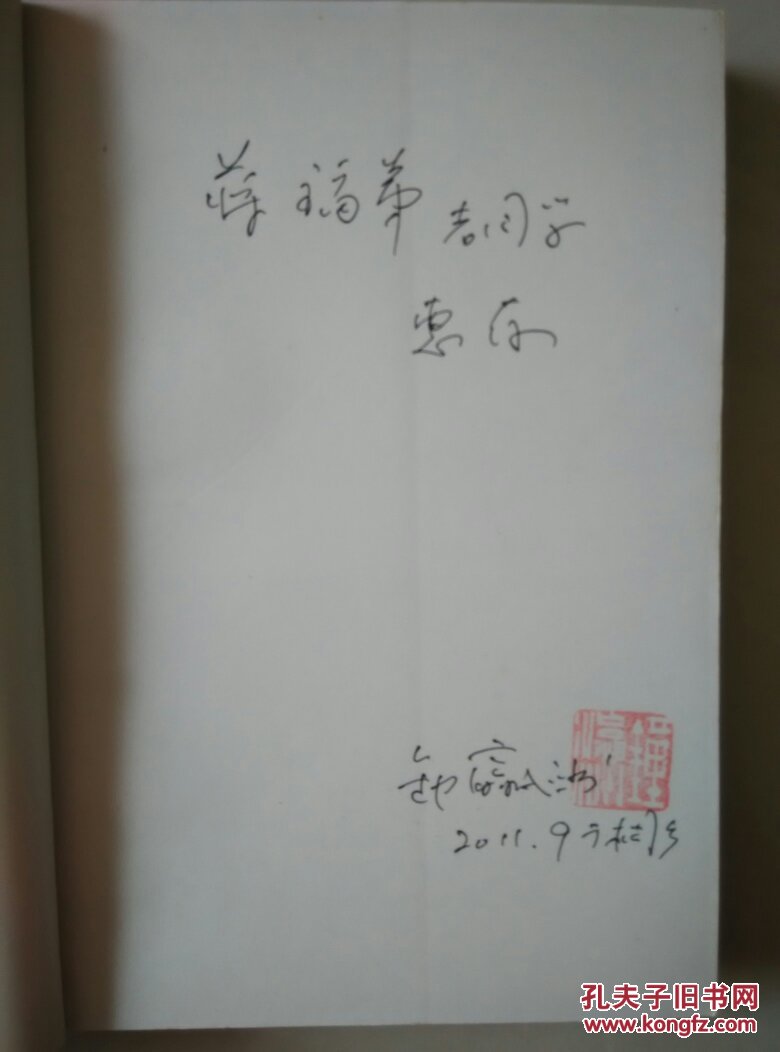 蒋福第老同学
惠存
钟嬴洲
2011.9于桂林
孔夫子旧书网
www.kongfz.com